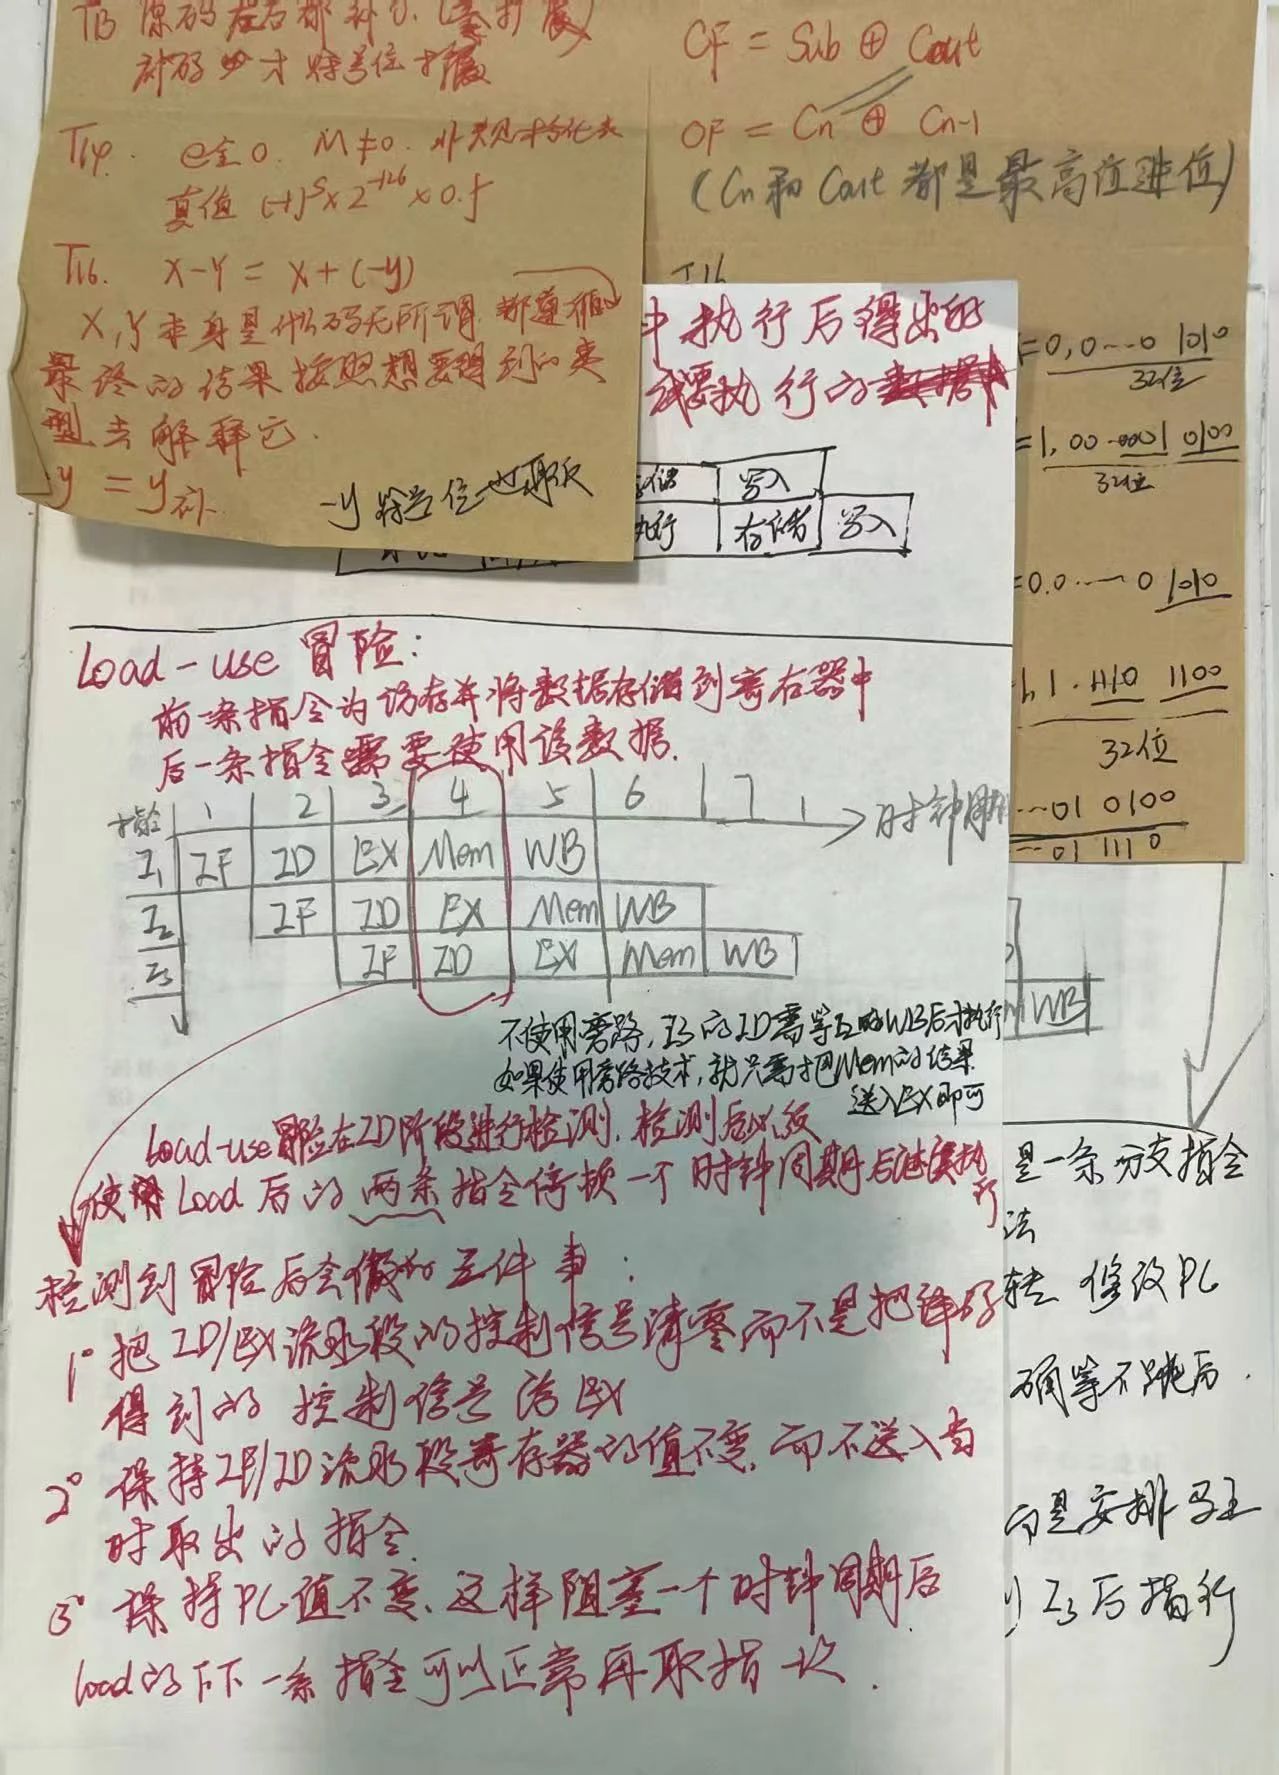 T13 原码左右都补0.(零扩展)
补码少才符号位扩展
T14. e全0. M≠0. 非规格化表
真值 (-1)^S×2^-126×0.f
T16. X-Y = X+(-Y)
X,Y本身是什么码无所谓,都遵循
最终的结果按照想要得到的类
型去解释它.
y = y补
-y 符号位也取反
CF = Sub ⊕ Cout
OF = Cn ⊕ Cn-1
(Cn和Cout都是最高位进位)
T16
=0,0…0 1010
32位
=1,00…0001 0100
32位
=0.0…0 1010
1.1110 1100
32位
…01 0100
…01 1110
中执行后得出的
或要执行的
存储 写入
执行 存储 写入
Load-use冒险:
前条指令为访存并将数据存储到寄存器中
后一条指令需要使用该数据.
指令 1 2 3 4 5 6 7 时钟周期
I1 IF ID EX Mem WB
I2 IF ID EX Mem WB
I3 IF ID EX Mem WB
不使用旁路,I3的ID需等I2的WB后才执行
如果使用旁路技术,就只需把Mem的结果
送入EX即可
Load-use冒险在ID阶段进行检测,检测后必须
使 Load后的两条指令停顿一个时钟周期后继续执
行
检测到冒险后会做的三件事:
1° 把ID/EX流水段的控制信号清零而不是把译码
得到的控制信号给EX
2° 保持IF/ID流水段寄存器的值不变,而不送入当
时取出的指令.
3° 保持PC值不变,这样阻塞一个时钟周期后
load的下下一条指令可以正常再取指一次.
WB
是一条分支指令
法
转 修改PC
确等不跳后.
而是安排
I3后指行